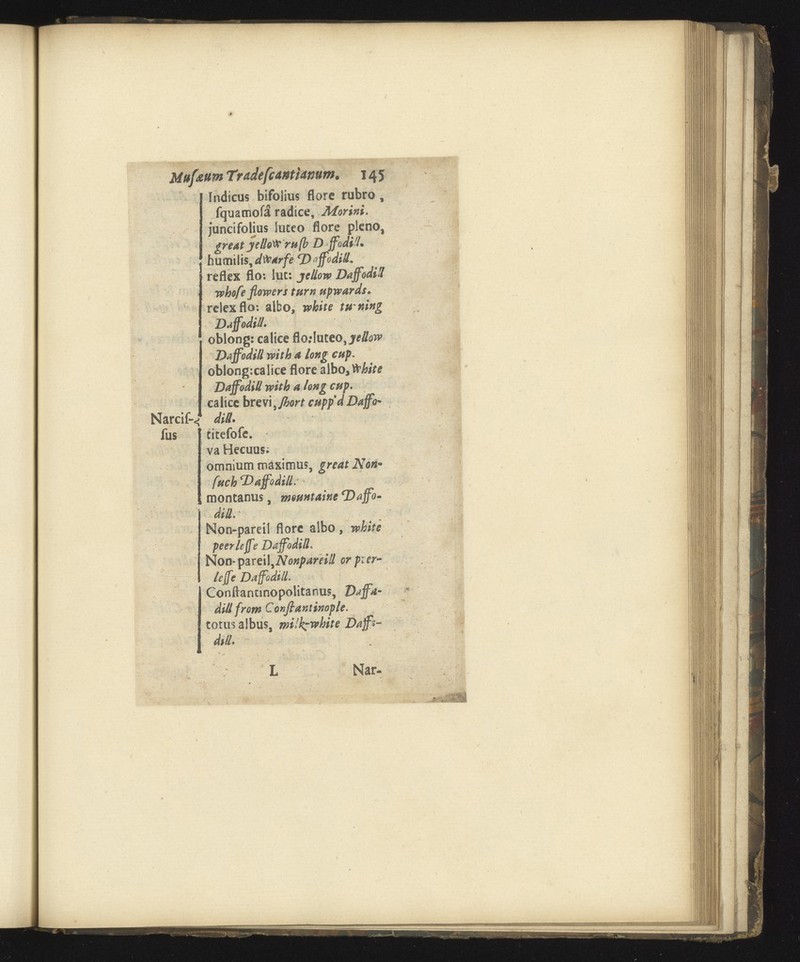 Musæum Tradescantianum. 145
Indicus bifolius flore rubro,
squamosâ radice, Morini.
juncifolius luteo flore pleno,
great yellow rush D ffodill.
humilis, dwarfe Daffodill.
reflex flo: lut: yellow Daffodill
whose flowers turn upwards.
relex flo: albo, white tu ning
Daffodill.
oblong: calice flo: luteo, yellow
Daffodill with a long cup.
oblong: calice flore albo, White
Daffodill with a long cup.
calice brevi, short cupp'd Daffo-
Narcis- dill.
sus titesose.
va Hecuus.
omnium maximus, great Non-
such Daffodill.
montanus, mountaine Daffo-
dill.
Non-pareil flore albo, white
peerlesse Daffodill.
Non-pareil, Nonpareill or peer-
lesse Daffodill.
Constantinopolitanus, Daffa-
dill from Constantinople.
totus albus, milk-white Daffo-
dill.
L Nar-